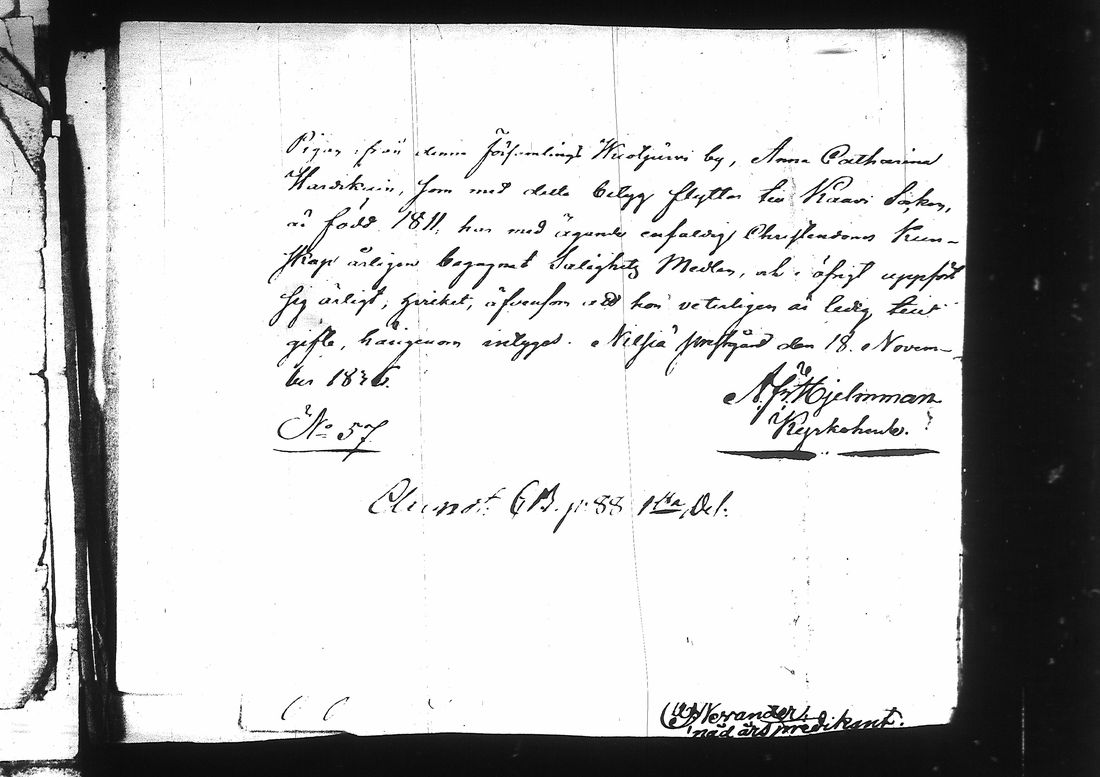 Pigan från denna Församlings Kuotjärvi by, Anna Catharina
som med detta betyg flyttar till Kaavi Socken,
är född 1811, har med ägande enfaldig Christendoms Kun-
skap årligen begagnat Salighets Medlen, och i öfrigt uppfört
sig ärligt, hvilket, äfvensom att hon veterligen är ledig till
gifte, härigenom intygas. Nilsiä prestgård den 18. Novem-
ber 1836.
A. Fr. Hjelmman
Kyrkoherde.
No 57
p. 88 1sta Del.
Norander,
nådårspredikant.